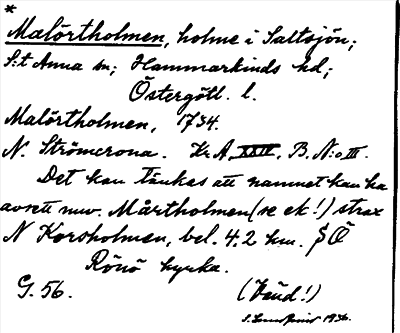 *
Malörtholmen, holme i Saltsjön;
S:t Anna sn; Hammarkinds hd;
Östergötl. l.
Malörtholmen, 1734.
N. Strömcrona. Kr. A, XXIV, B. N:o III.
Det kan tänkas att namnet kan ha
avsett nuv. Mårtholmen (se ek.!) strax
N Korsholmen, bel. 4.2 km. SÖ
Rönö kyrka.
G. 56. (Vänd!)
1936.